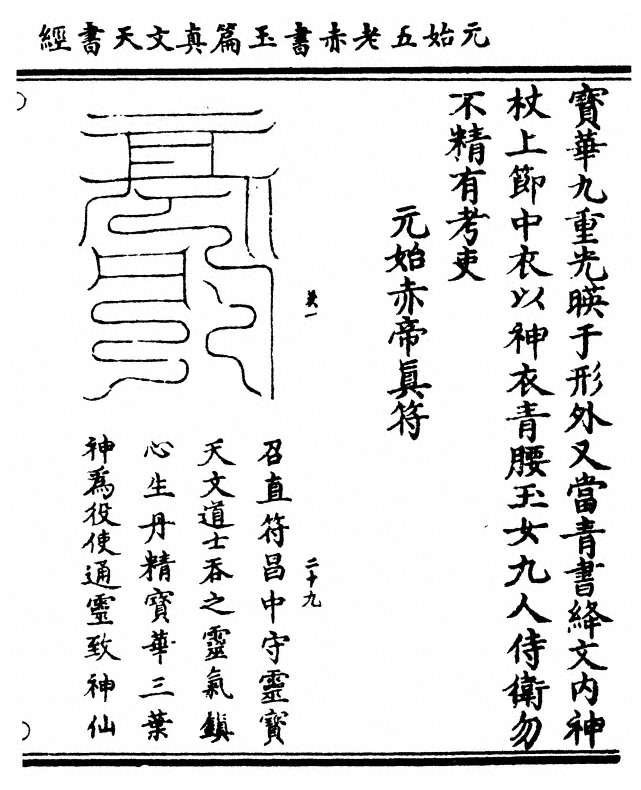 元始五老赤書玉篇真文天書經
寶華九重光暎于形外又當青書絳文内神
杖上節中衣以神衣青腰玉女九人侍衛勿
不精有考吏
元始赤帝真符
英一
二十九
召直符昌中守靈寶
天文道士吞之靈氣鎮
心生丹精寶華三葉
神爲役使通靈致神仙